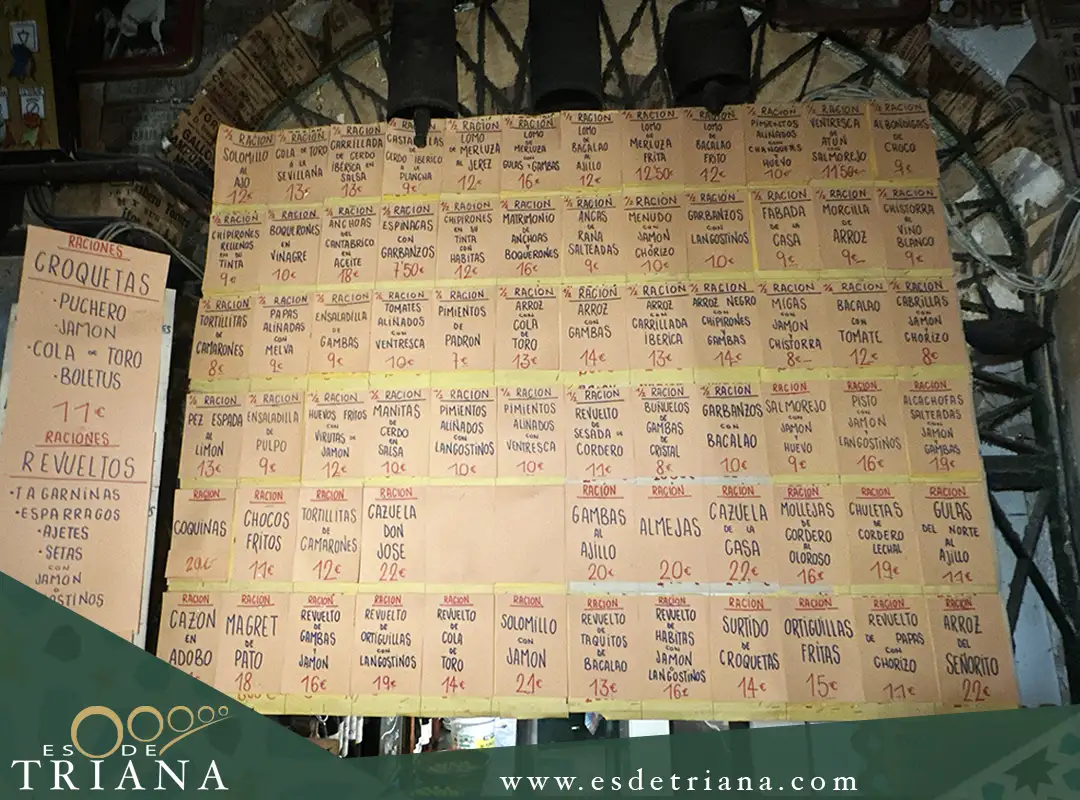 RACIONES
CROQUETAS
· PUCHERO
· JAMON
· COLA DE TORO
· BOLETUS
11€
RACIONES
REVUELTOS
· TAGARNINAS
· ESPARRAGOS
· AJETES
· SETAS
CON
JAMON
½ RACION
SOLOMILLO
AL
AJO
12€
½ RACION
COLA DE TORO
A LA
SEVILLANA
13€
RACION
CARRILLADA
DE CERDO
IBERICA EN
SALSA
13€
RACION
CERDO IBERICO
PLANCHA
9€
½ RACION
LOMO
DE
MERLUZA
AL
JEREZ
12€
½ RACION
LOMO
DE
MERLUZA
CON
GULAS Y GAMBAS
16€
½ RACION
LOMO
DE
BACALAO
AL
AJILLO
12€
½ RACION
LOMO
DE
MERLUZA
FRITA
12'50€
½ RACION
LOMO
DE
BACALAO
FRITO
12€
½ RACION
PIMIENTOS
ALIÑADOS
CON
HUEVO
10€
½ RACION
VENTRESCA
DE
ATÚN
SALMOREJO
11'50€
½ RACION
ALBONDIGAS
DE
CHOCO
9€
½ RACION
CHIPIRONES
RELLENOS
EN SU
TINTA
9€
½ RACION
BOQUERONES
EN
VINAGRE
10€
½ RACION
ANCHOAS
DEL
CANTABRICO
EN
ACEITE
18€
½ RACION
ESPINACAS
CON
GARBANZOS
7'50€
½ RACION
CHIPIRONES
EN SU
TINTA
CON
HABITAS
12€
½ RACION
MATRIMONIO
DE
ANCHOAS
Y
BOQUERONES
16€
½ RACION
ANCAS
DE
RANA
SALTEADAS
9€
½ RACION
MENUDO
CON
JAMON
Y
CHORIZO
10€
½ RACION
GARBANZOS
CON
LANGOSTINOS
10€
½ RACION
FABADA
DE LA
CASA
9€
½ RACION
MORCILLA
DE
ARROZ
9€
½ RACION
CHISTORRA
AL
VINO
BLANCO
9€
½ RACION
TORTILLITAS
DE
CAMARONES
8€
½ RACION
PAPAS
ALIÑADAS
CON
MELVA
9€
½ RACION
ENSALADILLA
DE
GAMBAS
9€
½ RACION
TOMATES
ALIÑADOS
CON
VENTRESCA
10€
½ RACION
PIMIENTOS
DE
PADRON
7€
½ RACION
ARROZ
CON
COLA
DE
TORO
13€
½ RACION
ARROZ
CON
GAMBAS
14€
½ RACION
ARROZ
CON
CARRILLADA
IBERICA
13€
½ RACION
ARROZ NEGRO
CON
CHIPIRONES
Y
GAMBAS
14€
½ RACION
MIGAS
CON
JAMON
Y
CHISTORRA
8€
½ RACION
BACALAO
CON
TOMATE
12€
½ RACION
CABRILLAS
CON
JAMON
Y
CHORIZO
8€
½ RACION
PEZ ESPADA
AL
LIMON
13€
½ RACION
ENSALADILLA
DE
PULPO
9€
½ RACION
HUEVOS FRITOS
CON
VIRUTAS DE
JAMON
12€
½ RACION
MANITAS
DE
CERDO
EN
SALSA
10€
½ RACION
PIMIENTOS
ALIÑADOS
CON
LANGOSTINOS
10€
½ RACION
PIMIENTOS
ALIÑADOS
CON
VENTRESCA
10€
½ RACION
REVUELTO
DE
SESADA DE
CORDERO
11€
½ RACION
BUÑUELOS
DE
GAMBAS
DE
CRISTAL
8€
½ RACION
GARBANZOS
CON
BACALAO
10€
RACION
SALMOREJO
CON
JAMON
Y
HUEVO
9€
RACION
PISTO
CON
JAMON
Y
LANGOSTINOS
16€
RACION
ALCACHOFAS
SALTEADAS
CON
JAMON
Y
GAMBAS
19€
RACION
COQUINAS
20€
RACION
CHOCOS
FRITOS
11€
RACION
TORTILLITAS
DE
CAMARONES
12€
RACION
CAZUELA
DON
JOSE
22€
RACIÓN
GAMBAS
AL
AJILLO
20€
RACION
ALMEJAS
20€
RACION
CAZUELA
DE LA
CASA
22€
RACION
MOLLEJAS
DE
CORDERO
AL
OLOROSO
16€
RACION
CHULETAS
DE
CORDERO
LECHAL
19€
RACION
GULAS
DEL NORTE
AL
AJILLO
11€
RACION
CAZON
EN
ADOBO
RACION
MAGRET
DE
PATO
18
RACION
REVUELTO
DE
GAMBAS
Y
JAMON
16€
RACION
REVUELTO
DE
ORTIGUILLAS
CON
LANGOSTINOS
19€
RACION
REVUELTO
DE
COLA
DE
TORO
14€
RACION
SOLOMILLO
CON
JAMON
21€
RACION
REVUELTO
DE
TAQUITOS
DE
BACALAO
13€
RACION
REVUELTO
DE
HABITAS
CON
JAMON
Y
LANGOSTINOS
16€
RACION
SURTIDO
DE
CROQUETAS
14€
RACION
ORTIGUILLAS
FRITAS
15€
RACION
REVUELTO
DE PAPAS
CON
CHORIZO
11€
RACION
ARROZ
DEL
SEÑORITO
22€
ES DE
TRIANA
www.esdetriana.com